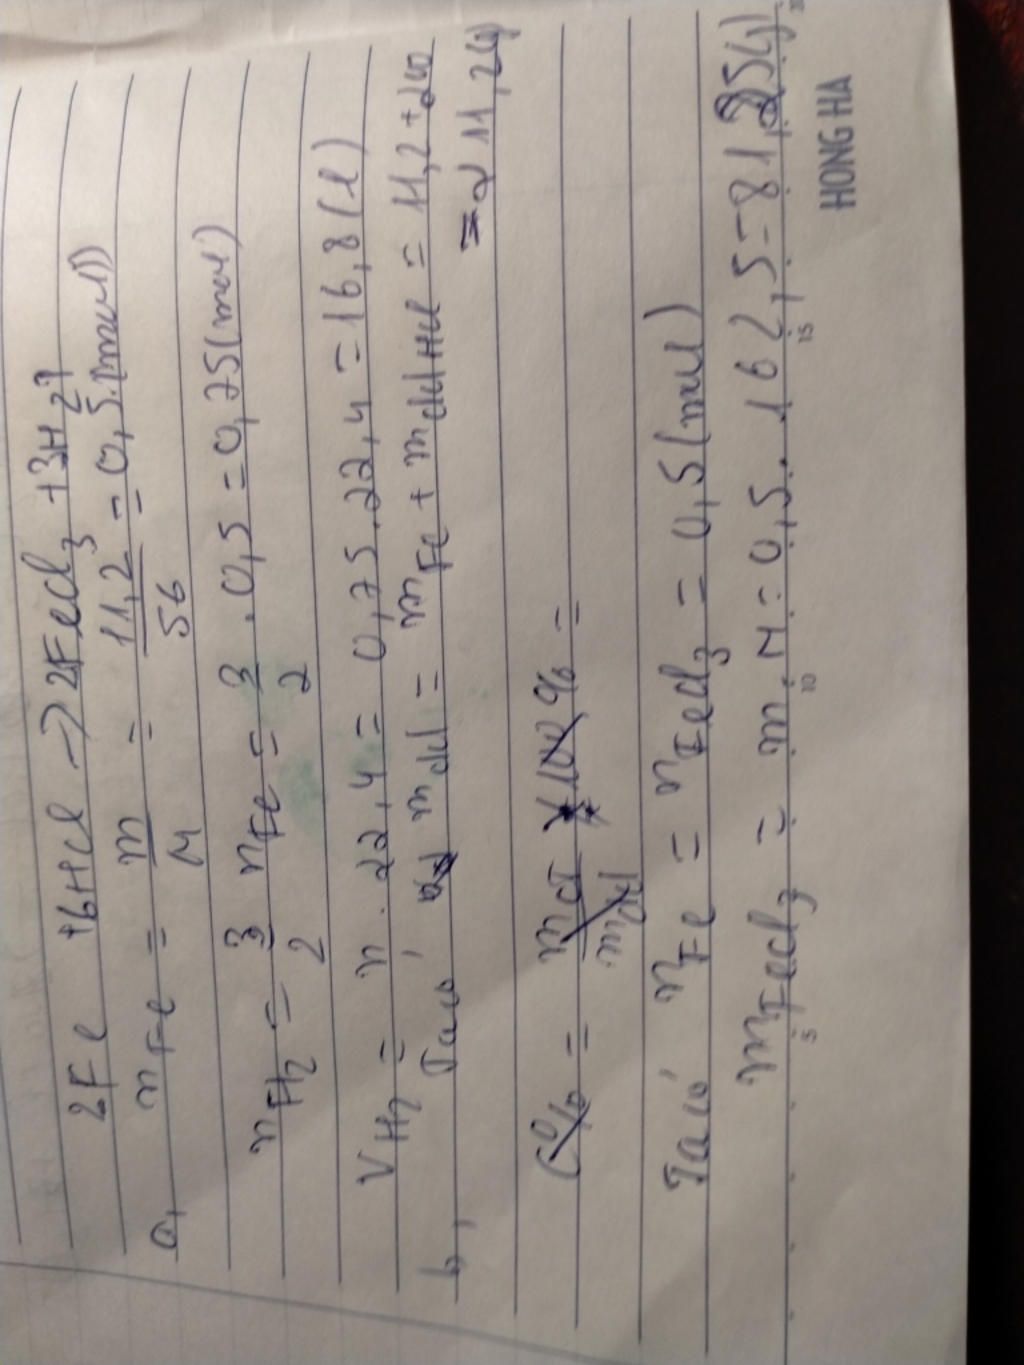 2Fe + 6HCl → 2FeCl3 + 3H2↑
a, nFe = m/M = 11,2/56 = 0,5 (mol)
nH2 = 3/2 nFe = 3/2 . 0,5 = 0,75 (mol)
VH2 = n . 22,4 = 0,75 . 22,4 = 16,8 (l)
b, Ta có mdd = mFe + mddHCl = 11,2 + 200
= 211,2(g)
C% = mct/mdd × 100% =
Ta có nFe = nFeCl3 = 0,5 (mol)
mFeCl3 = m . M = 0,5 . 162,5 = 81,25(g)
5 10 15 20
HONG HA